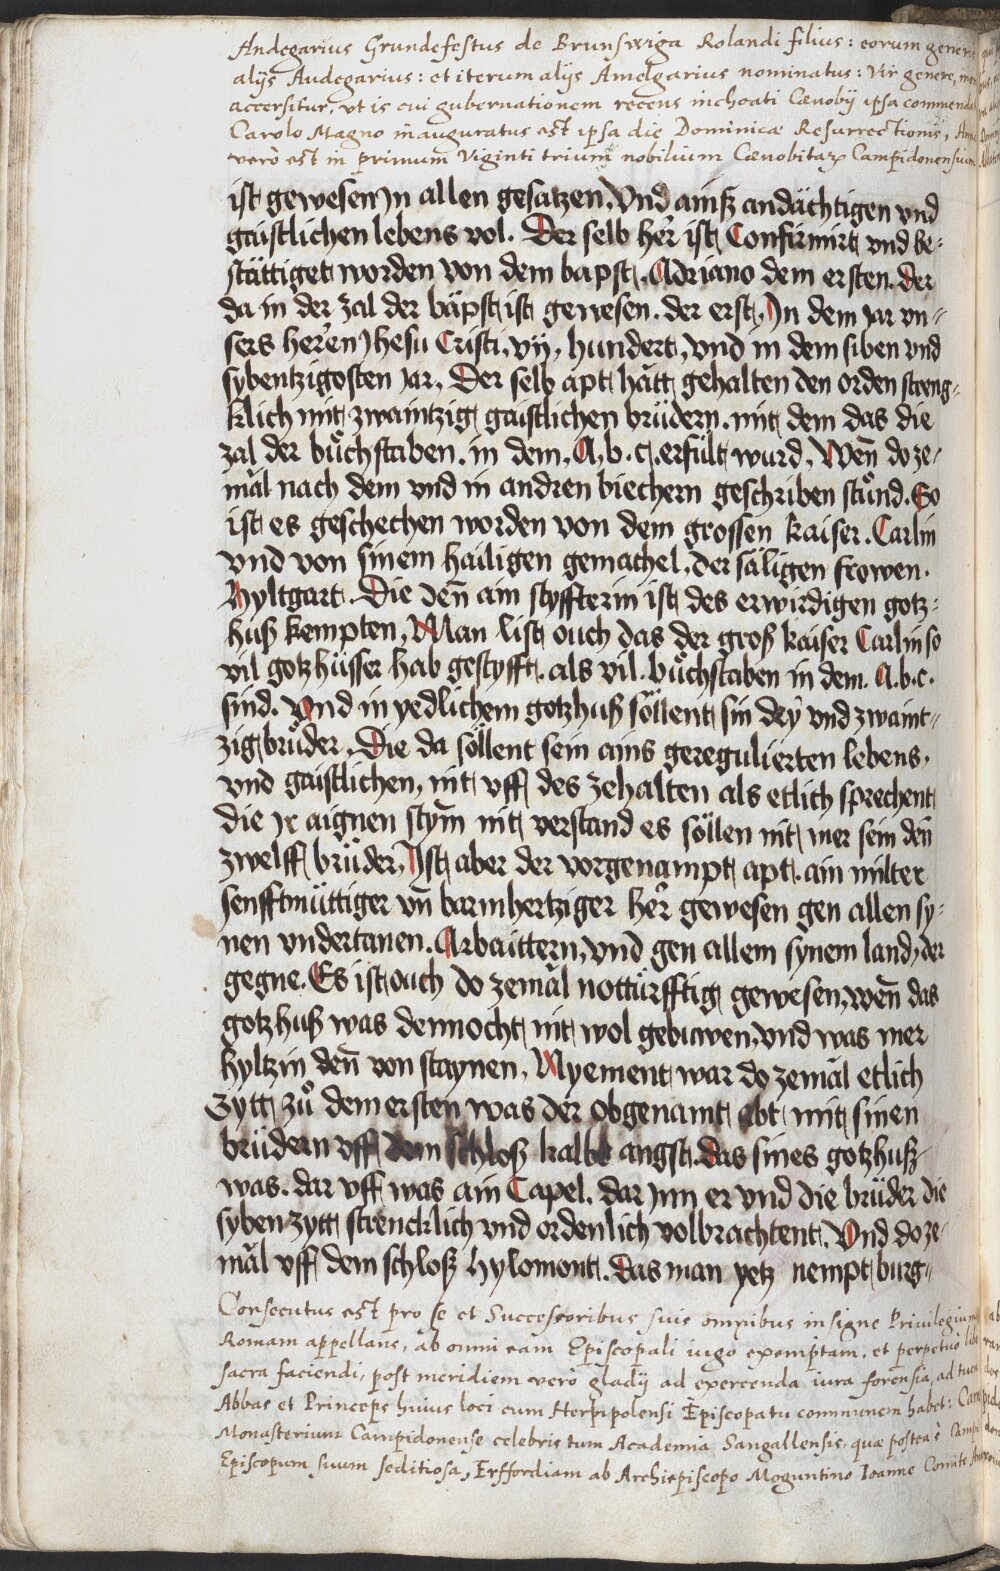 Andegarius Grundefestus de Brunswiga Rolandi filius: eorum generis
alijs Audegarius: et iterum alijs Amelgarius nominatus: Vir genere,
accersitur, vt is cui gubernationem recens inchoati Cœnobij ipsa commendat
Carolo Magno inauguratus est ipsa die Dominicæ Resurrectionis,
verò est in primum Viginti trium nobilium Cœnobitarꝝ Campidonensium
ist gewesen Jn allen gesatzen. Vnd ainß andächtigen vnd
gaistlichen lebens vol. Der selb her̄ ist Confirmirt vnd be⸗
stättiget worden von dem bapst. Adriano dem ersten. Der
da in der zal der bäpst ist gewesen. der erst. Jn dem Jar vn⸗
sers her̄en Jhesu Cristi. vij. hundert, vnd in dem siben vnd
sybentzigosten Jar. Der selb apt hått gehalten den orden streng⸗
klich mit zwaintzig gaistlichen brüdern. mit dem das die
zal der bůchstaben. in dem. A. b. c. erfült wurd. Wen̄ do ze⸗
mål nach dem vnd in andren biechern geschriben stůnd. So
ist es geschechen worden von dem grossen kaiser. Carlin
vnd von sinem hailigen gemachel, der säligen frowen.
Hyltgart. Die den̄ ain styffterin ist des erwirdigen gotz⸗
huß kempten. Man list ouch das der groß kaiser Carlin so
vil gotzhüsser hab gestyfft. als vil. bůchstaben in dem. A. b. c.
sind. Vnd in yedlichem gotzhuß söllent sin dry vnd zwaint⸗
zig brůder. Die da söllent sein ains geregulierten lebens,
vnd gaistlichen, nit vff des zehalten als etlich sprechent
die Jr aignen stym̄ nit verstand es söllen nit mer sein den̄
zwelff brůder. Jst aber der vorgenampt apt. ain milter
senfftmüttiger vn̄ barmhertziger her̄ gewesen gen allen sy⸗
nen vndertanen. Arbaittern, vnd gen allem synem land, der
gegne. Es ist ouch do zemål nottürfftig gewesen, wen̄ das
gotzhuß was dennocht nit wol gebuwen, vnd was mer
hyltzin den̄ von staynen. Nyement war do zemål etlich
Zytt zů dem ersten was der obgenamt abt mit sinen
brüdern vff dem schloß kalbe angst. das sines gotzhuß
was. dar vff was ain Capel. dar Jnn er vnd die brüder die
syben zytt strencklich vnd ordenlich volbrachtent. Vnd do ze⸗
mål vff dem schloß hylomont. Das man yetz nempt burg⸗
Consecutus est pro se et Successoribus suis omnibus insigne Priuilegium
Romam appellans, ab omni eam Episcopali iugo exemptam, et perpetuò
sacra faciendi, post meridiem verò gladij ad exercenda iura forensia, ad
Abbas et Princeps huius loci cum Herpipolensi Episcopatu communem habet:
Monasterium Campidonense celebris tum Academia Sangallensis, quæ posteà
Episcopum suum seditiosa, Erffordiam ab Archiepiscopo Moguntino Ioanne Comite